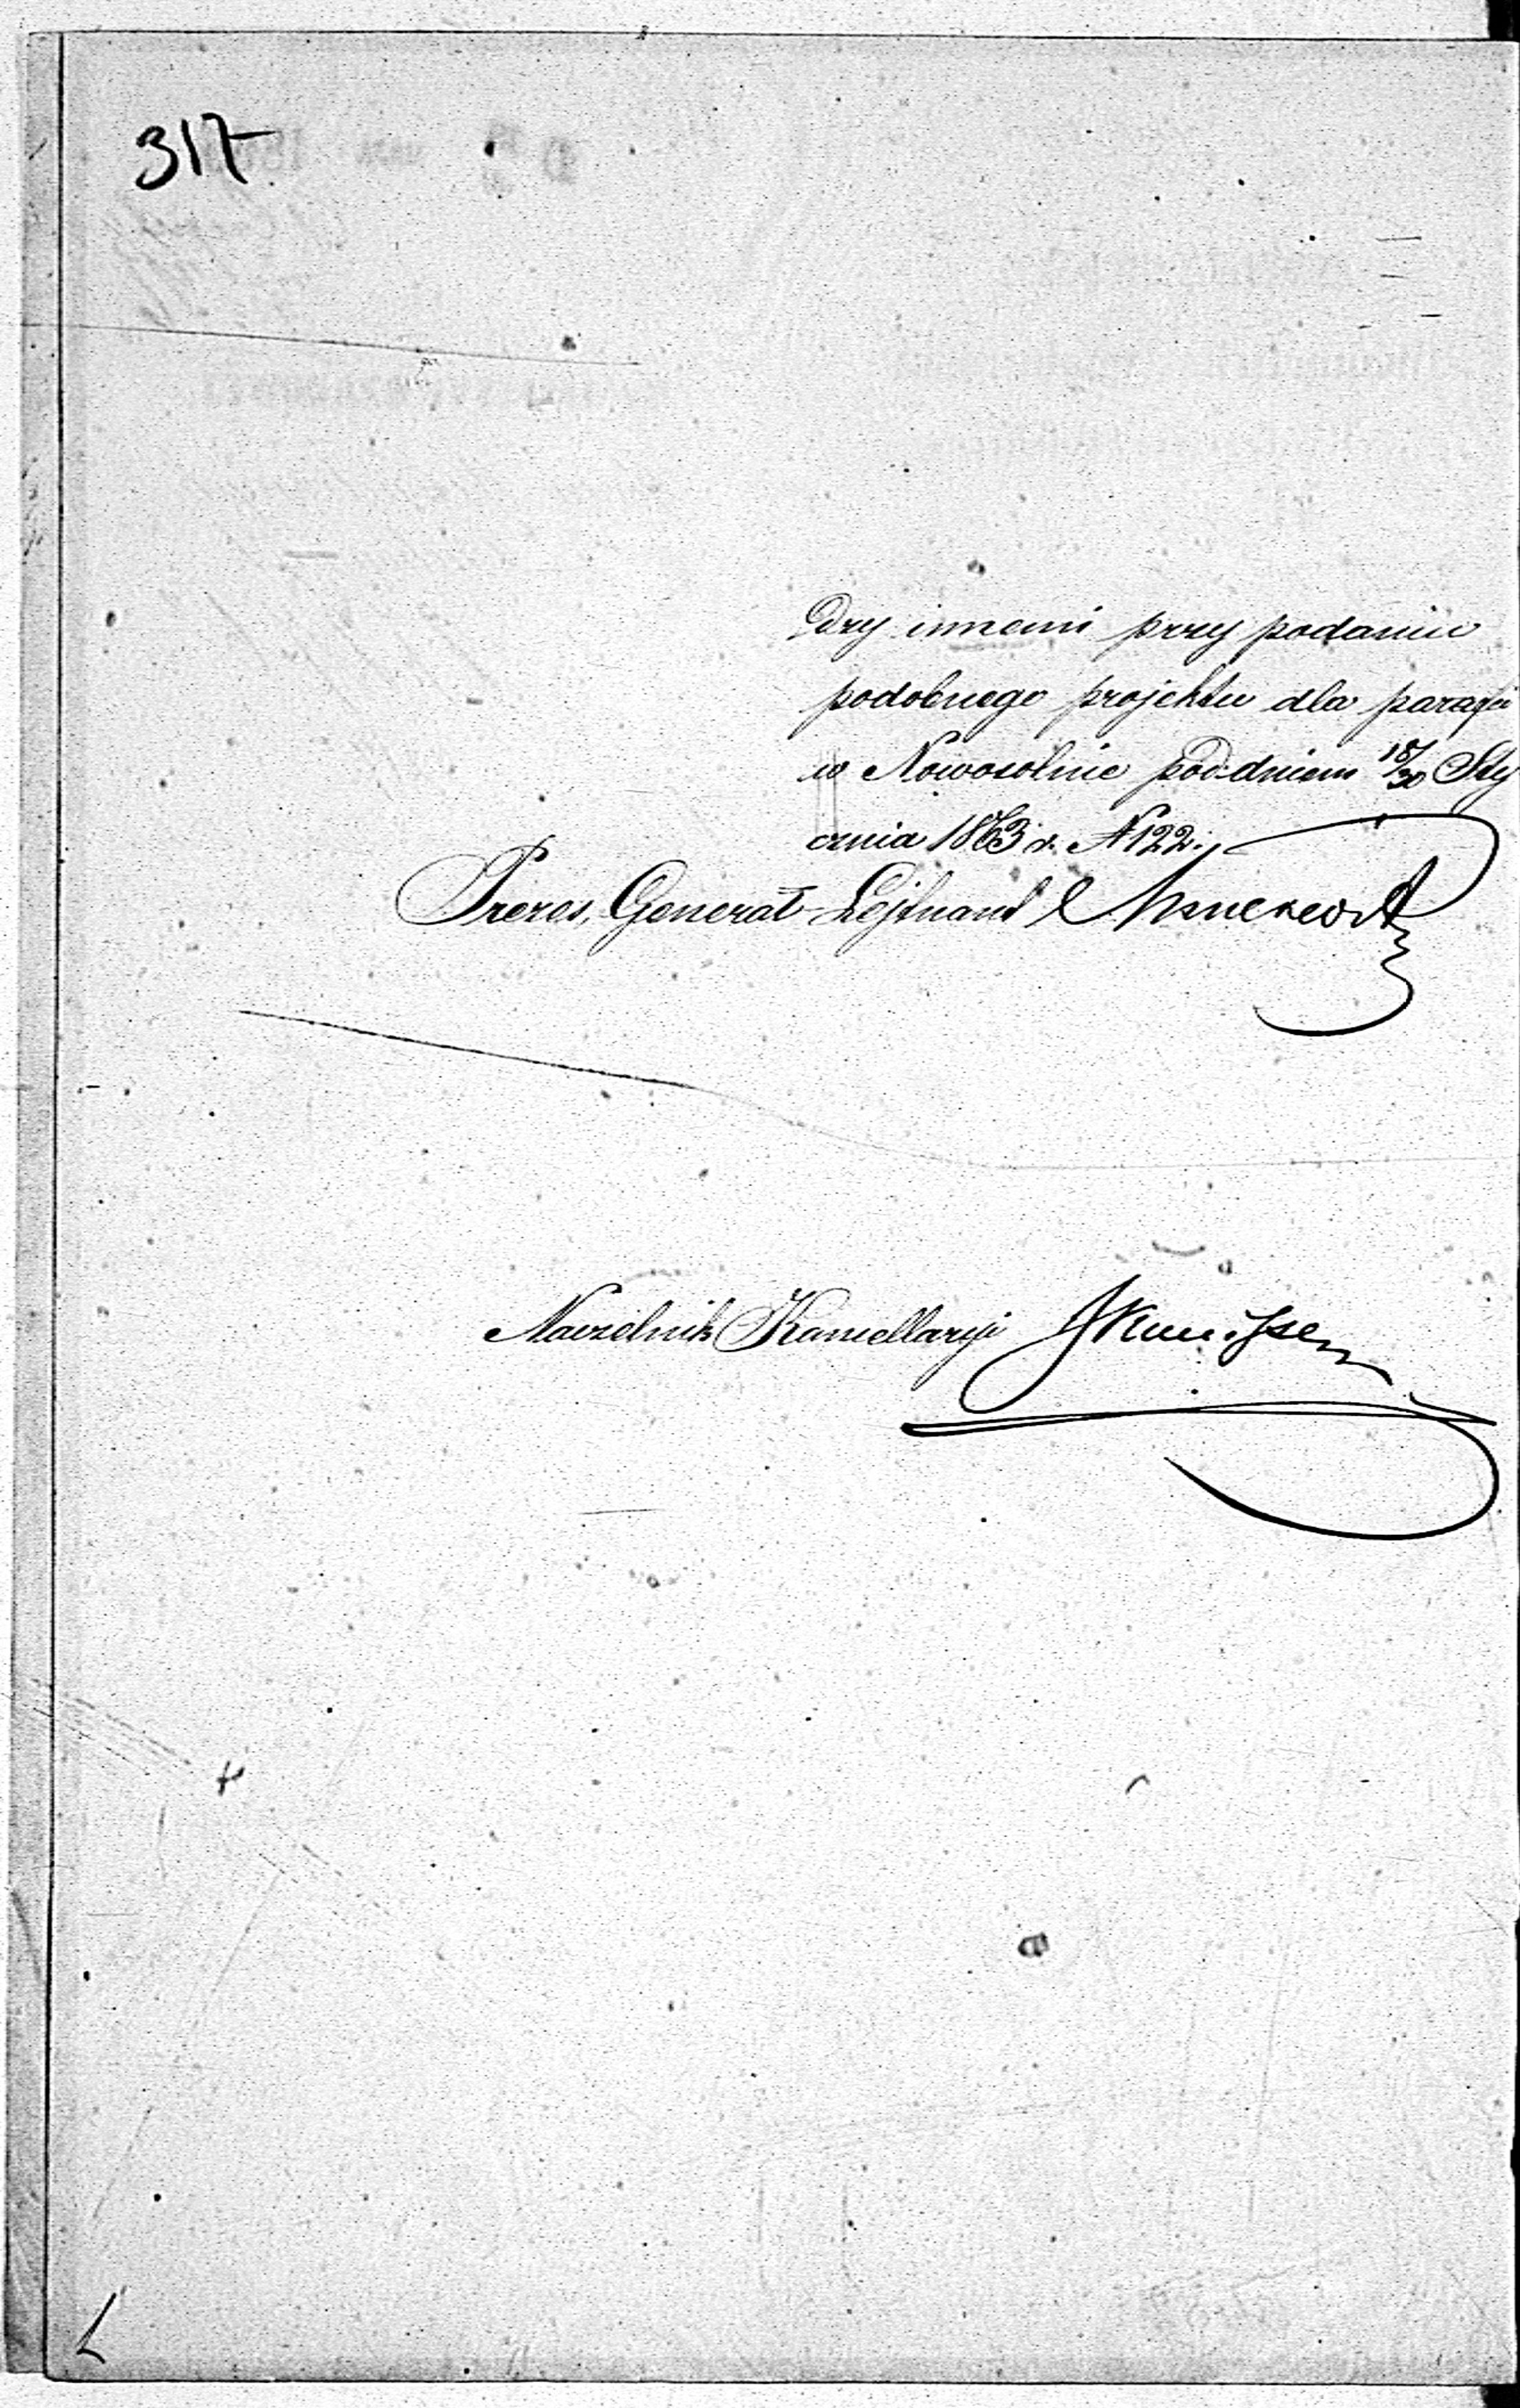 317
dzy innemi przy podaniu
podobnego projektu dla parafii
w Nowosolnie pod dniem 18/30 Sty
cznia 1863 r. N 122.
Prezes, Generał-Lejtnant
Naczelnik Kancellaryi